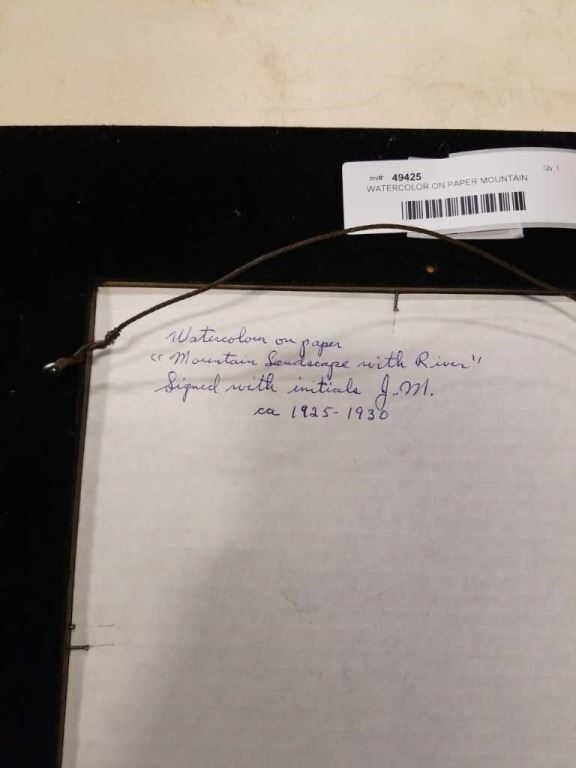 Inv#: 49425
Qty: 1
WATERCOLOR ON PAPER MOUNTAIN
Watercolour on paper
"Mountain Landscape with River"
Signed with initials J.M.
ca 1925-1930